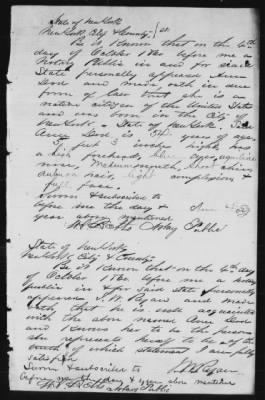 State of New York
New York City & County } ss
Be it Known that on the 6th
day of October 18 before me a
Notary Public in and for said
State personally appeared Anna
Gove and made oath in due
form of law that she is a
native citizen of the United States
and was born in the City of
New York, State of New York
Anna Gove is 34 years of age
5 feet 3 inches high has
a high forehead, blue eyes, aquiline
nose, medium mouth, chin
auburn hair, light complexion &
full face.
Sworn & subscribed to
before me the day &
year above mentioned
Notary Public
State of New York
New York City & County
Be it Known that on the 6th day
of October 18 before me a Notary
public in & for said state personally
appeared J. W. and made
oath that he is well acquainted
with the above named Anna Gove
and Knows her to be the person
she represents herself to be & of the
truth of which statement I am fully
satisfied.
Sworn & subscribed to
before me the day & year above mentioned
Notary Public